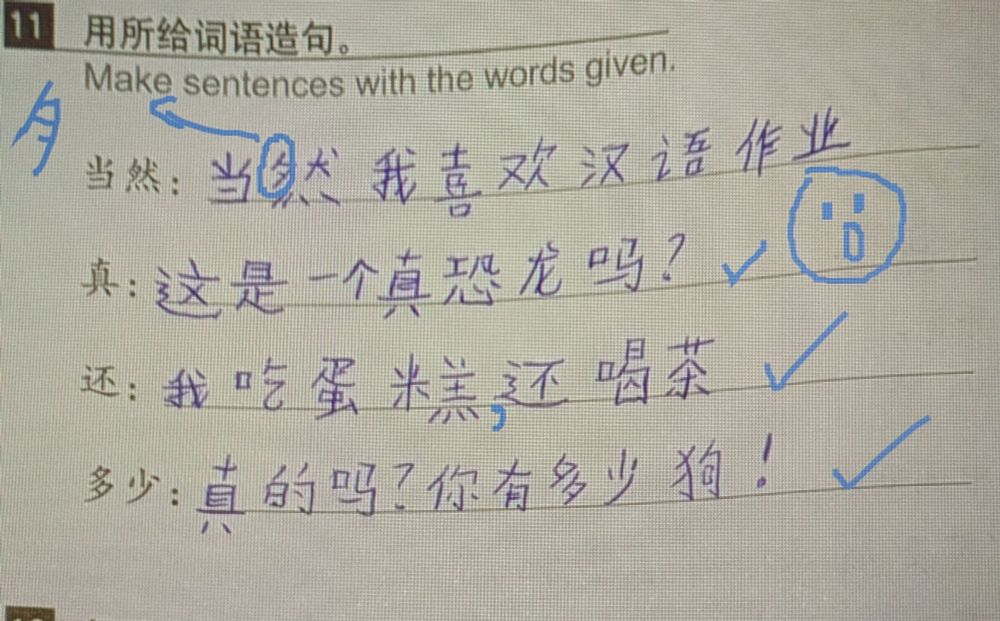 11 用所给词语造句。
Make sentences with the words given.
当然：当然我喜欢汉语作业
真：这是一个真恐龙吗？
还：我吃蛋糕，还喝茶
多少：真的吗？你有多少狗！